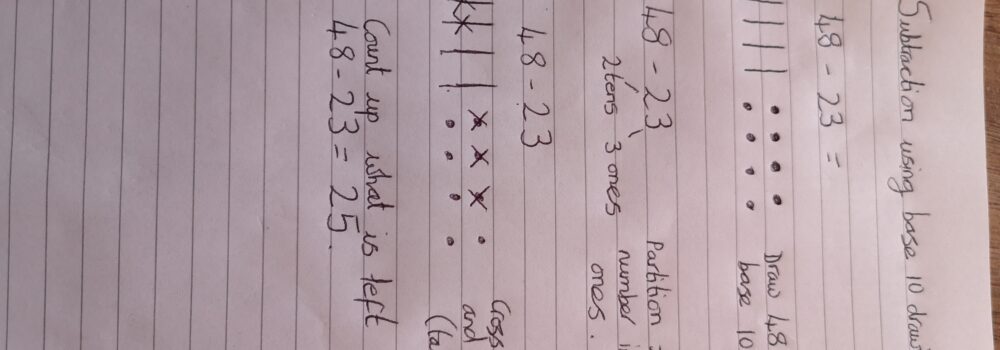 Subtraction using base 10
48 - 23 =
Draw 48
base 10
48 - 23
2 tens 3 ones
Partition
number
ones.
48 - 23
Cross
and
Count up what is left
48 - 23 = 25.